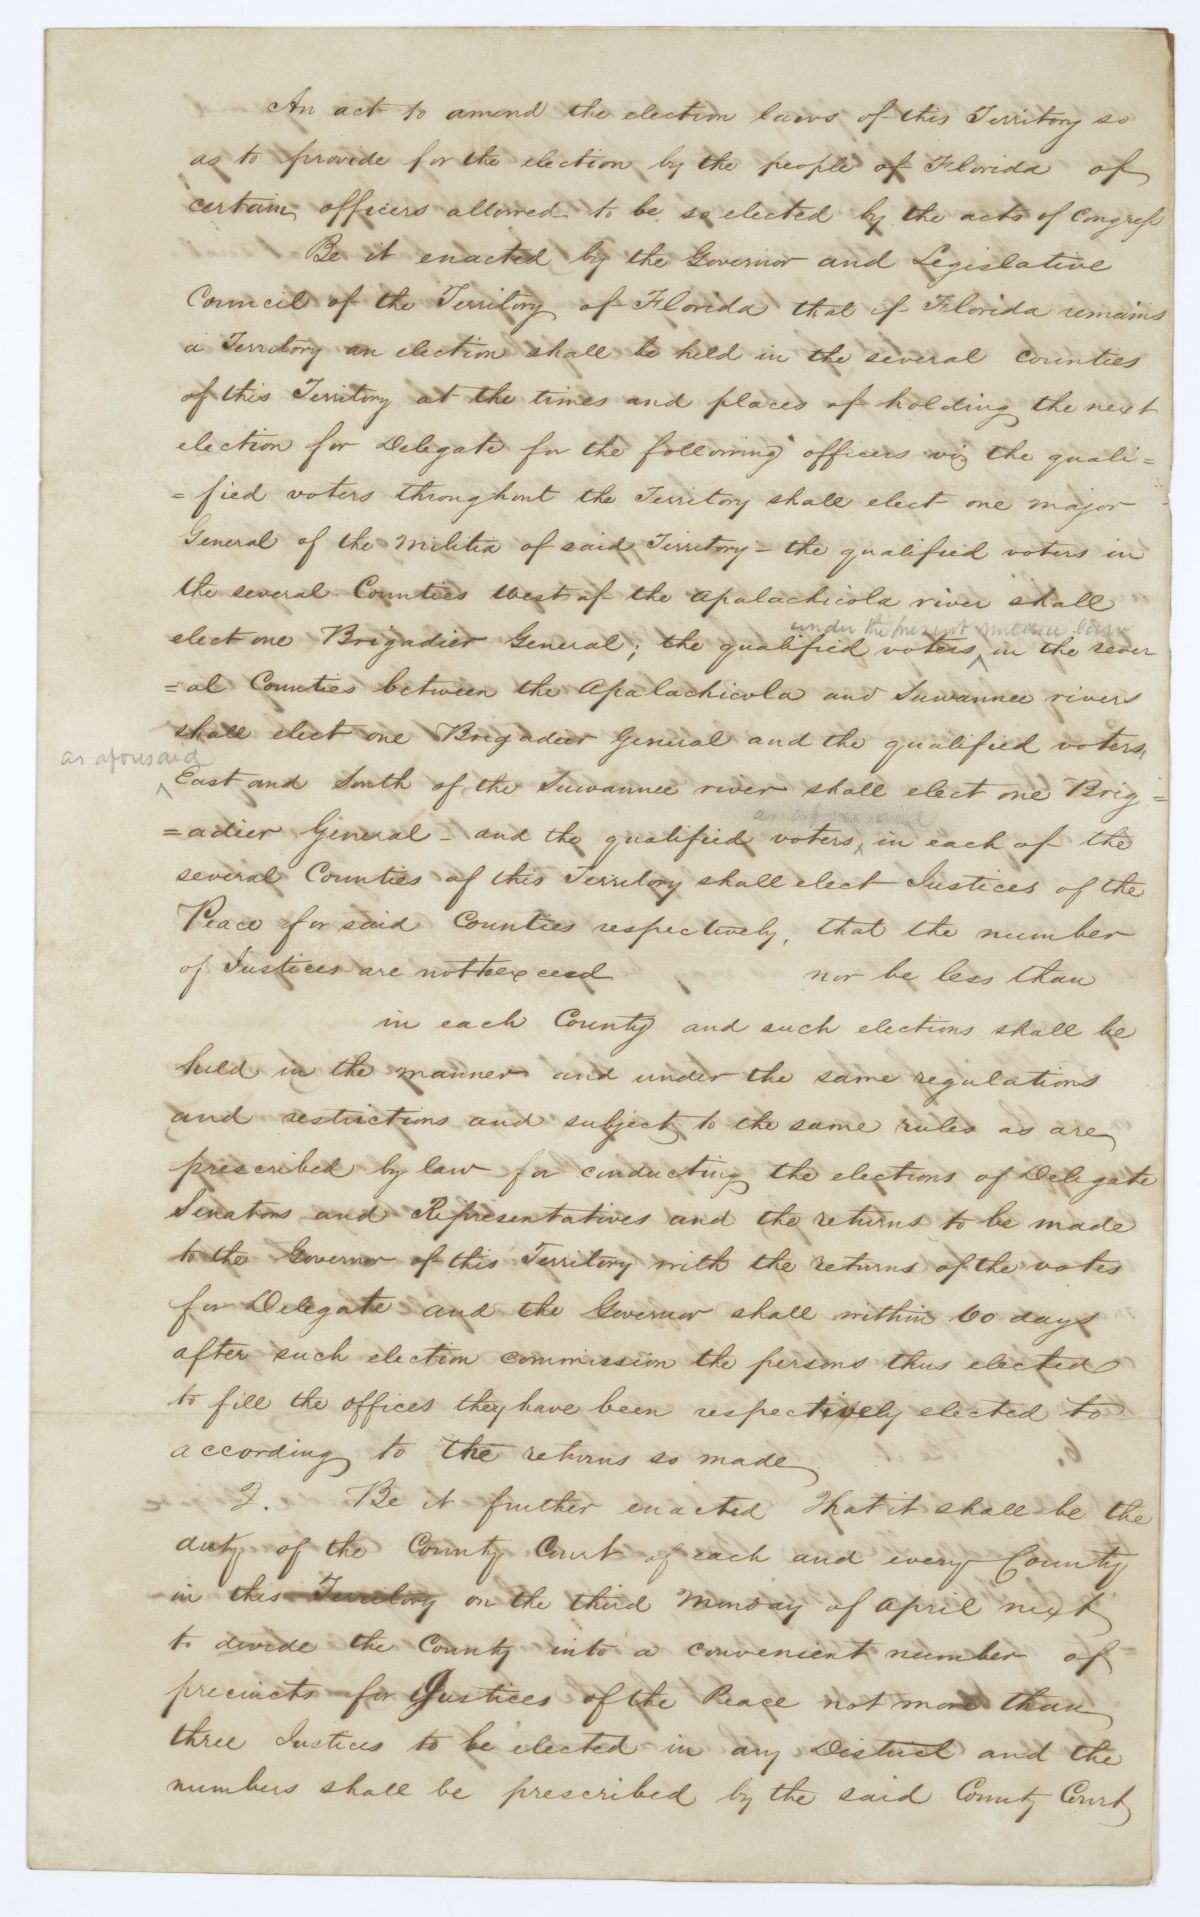 An act to amend the election laws of this Territory so
as to provide for the election by the people of Florida of
certain officers allowed to be so elected by the acts of Congress
Be it enacted by the Governor and Legislative
Council of the Territory of Florida that if Florida remains
a Territory an election shall be held in the several counties
of this Territory at the times and places of holding the next
election for Delegate for the following officers viz the quali=
=fied voters throughout the Territory shall elect one major
General of the Militia of said Territory - the qualified voters in
the several Counties West of the Apalachicola river shall
under the present militia law
elect one Brigadier General; the qualified voters ^ in the sever
=al Counties between the Apalachicola and Suwannee rivers
shall elect one Brigadier General and the qualified voters
as aforesaid
^ East and South of the Suwannee river shall elect one Brig=
as aforesaid
=adier General - and the qualified voters ^ in each of the
several Counties of this Territory shall elect Justices of the
Peace for said Counties respectively, that the number
of Justices are not to exceed nor be less than
in each County and such elections shall be
held in the manner and under the same regulations
and restrictions and subject to the same rules as are
prescribed by law for conducting the elections of Delegate
Senators and Representatives and the returns to be made
to the Governor of this Territory with the returns of the votes
for Delegate and the Governor shall within 60 days
after such election commission the persons thus elected
to fill the offices they have been respectively elected to
according to the returns so made
2. Be it further enacted That it shall be the
duty of the County Court of each and every County
in this Territory on the third Monday of April next
to devide the County into a convenient number of
precincts for Justices of the Peace not more than
three Justices to be elected in any District and the
numbers shall be prescribed by the said County Court